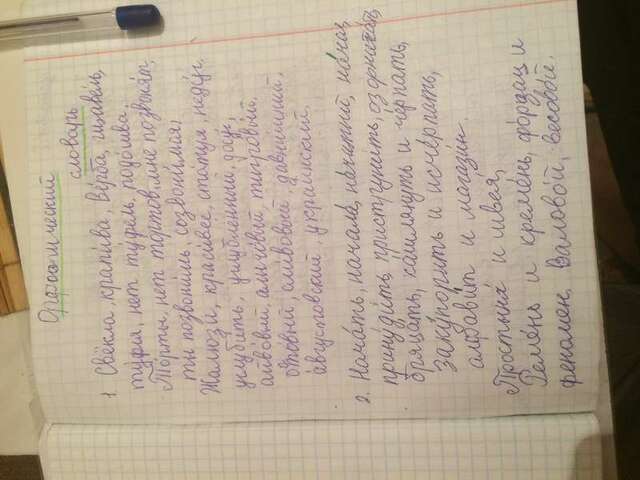 Орфоэпический
словарь
1. Свёкла, крапи́ва, Ве́рба, щаве́ль,
ту́фля, нет ту́фель, подо́шва.
То́рты, нет то́ртов, мне позвоня́т,
ты позвони́шь, созвони́мся,
Жалюзи́, краси́вее, ста́туя, неду́г.
углуби́ть, углублённый, досу́г,
айво́вый, алычо́вый, тигро́вый.
сли́вовый, да́вни́шний,
а́вгустовский, украи́нский.
2. Нача́ть, начала́, на́чал,
принуди́ть, приструни́ть, озорнича́ть,
бряца́ть, ка́шлянуть и че́рпать,
заку́порить и исче́рпать,
алфави́т и магази́н.
Простыня́ и швея́,
Реме́нь и креме́нь, фо́рзац и
феномен. Валово́й, весово́й.